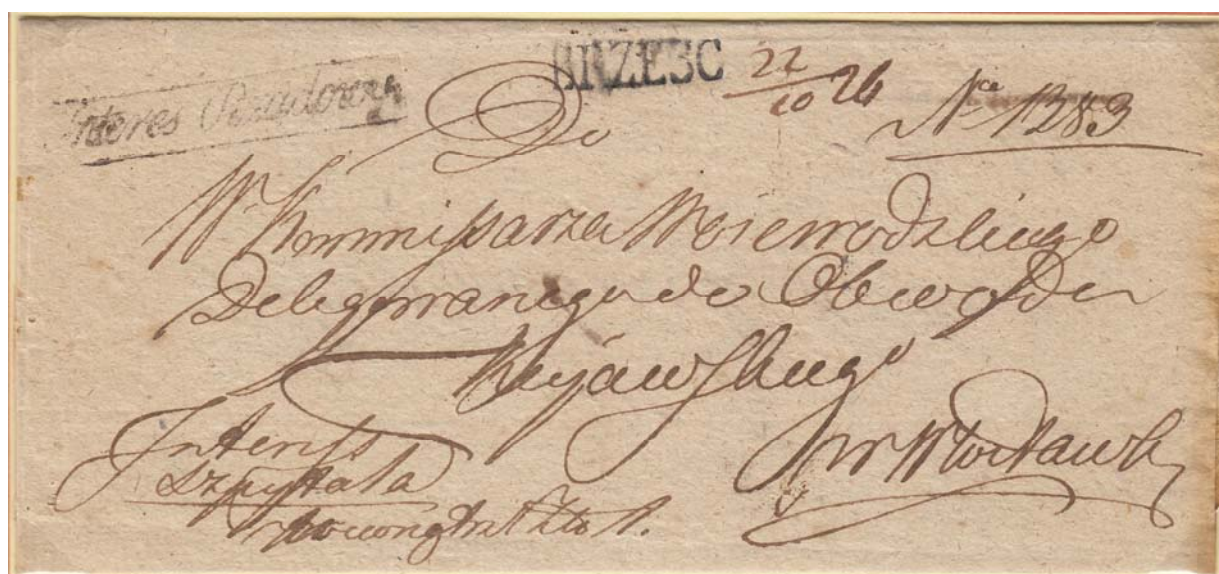 Interes Rządowy
BRZESC 22/10 26 Nro 1283
Do
W Kommissarza Woiewodzkiego
Delegowanego do Obwodu
Kujawskiego
w Włocławk
Interess
Szpitala